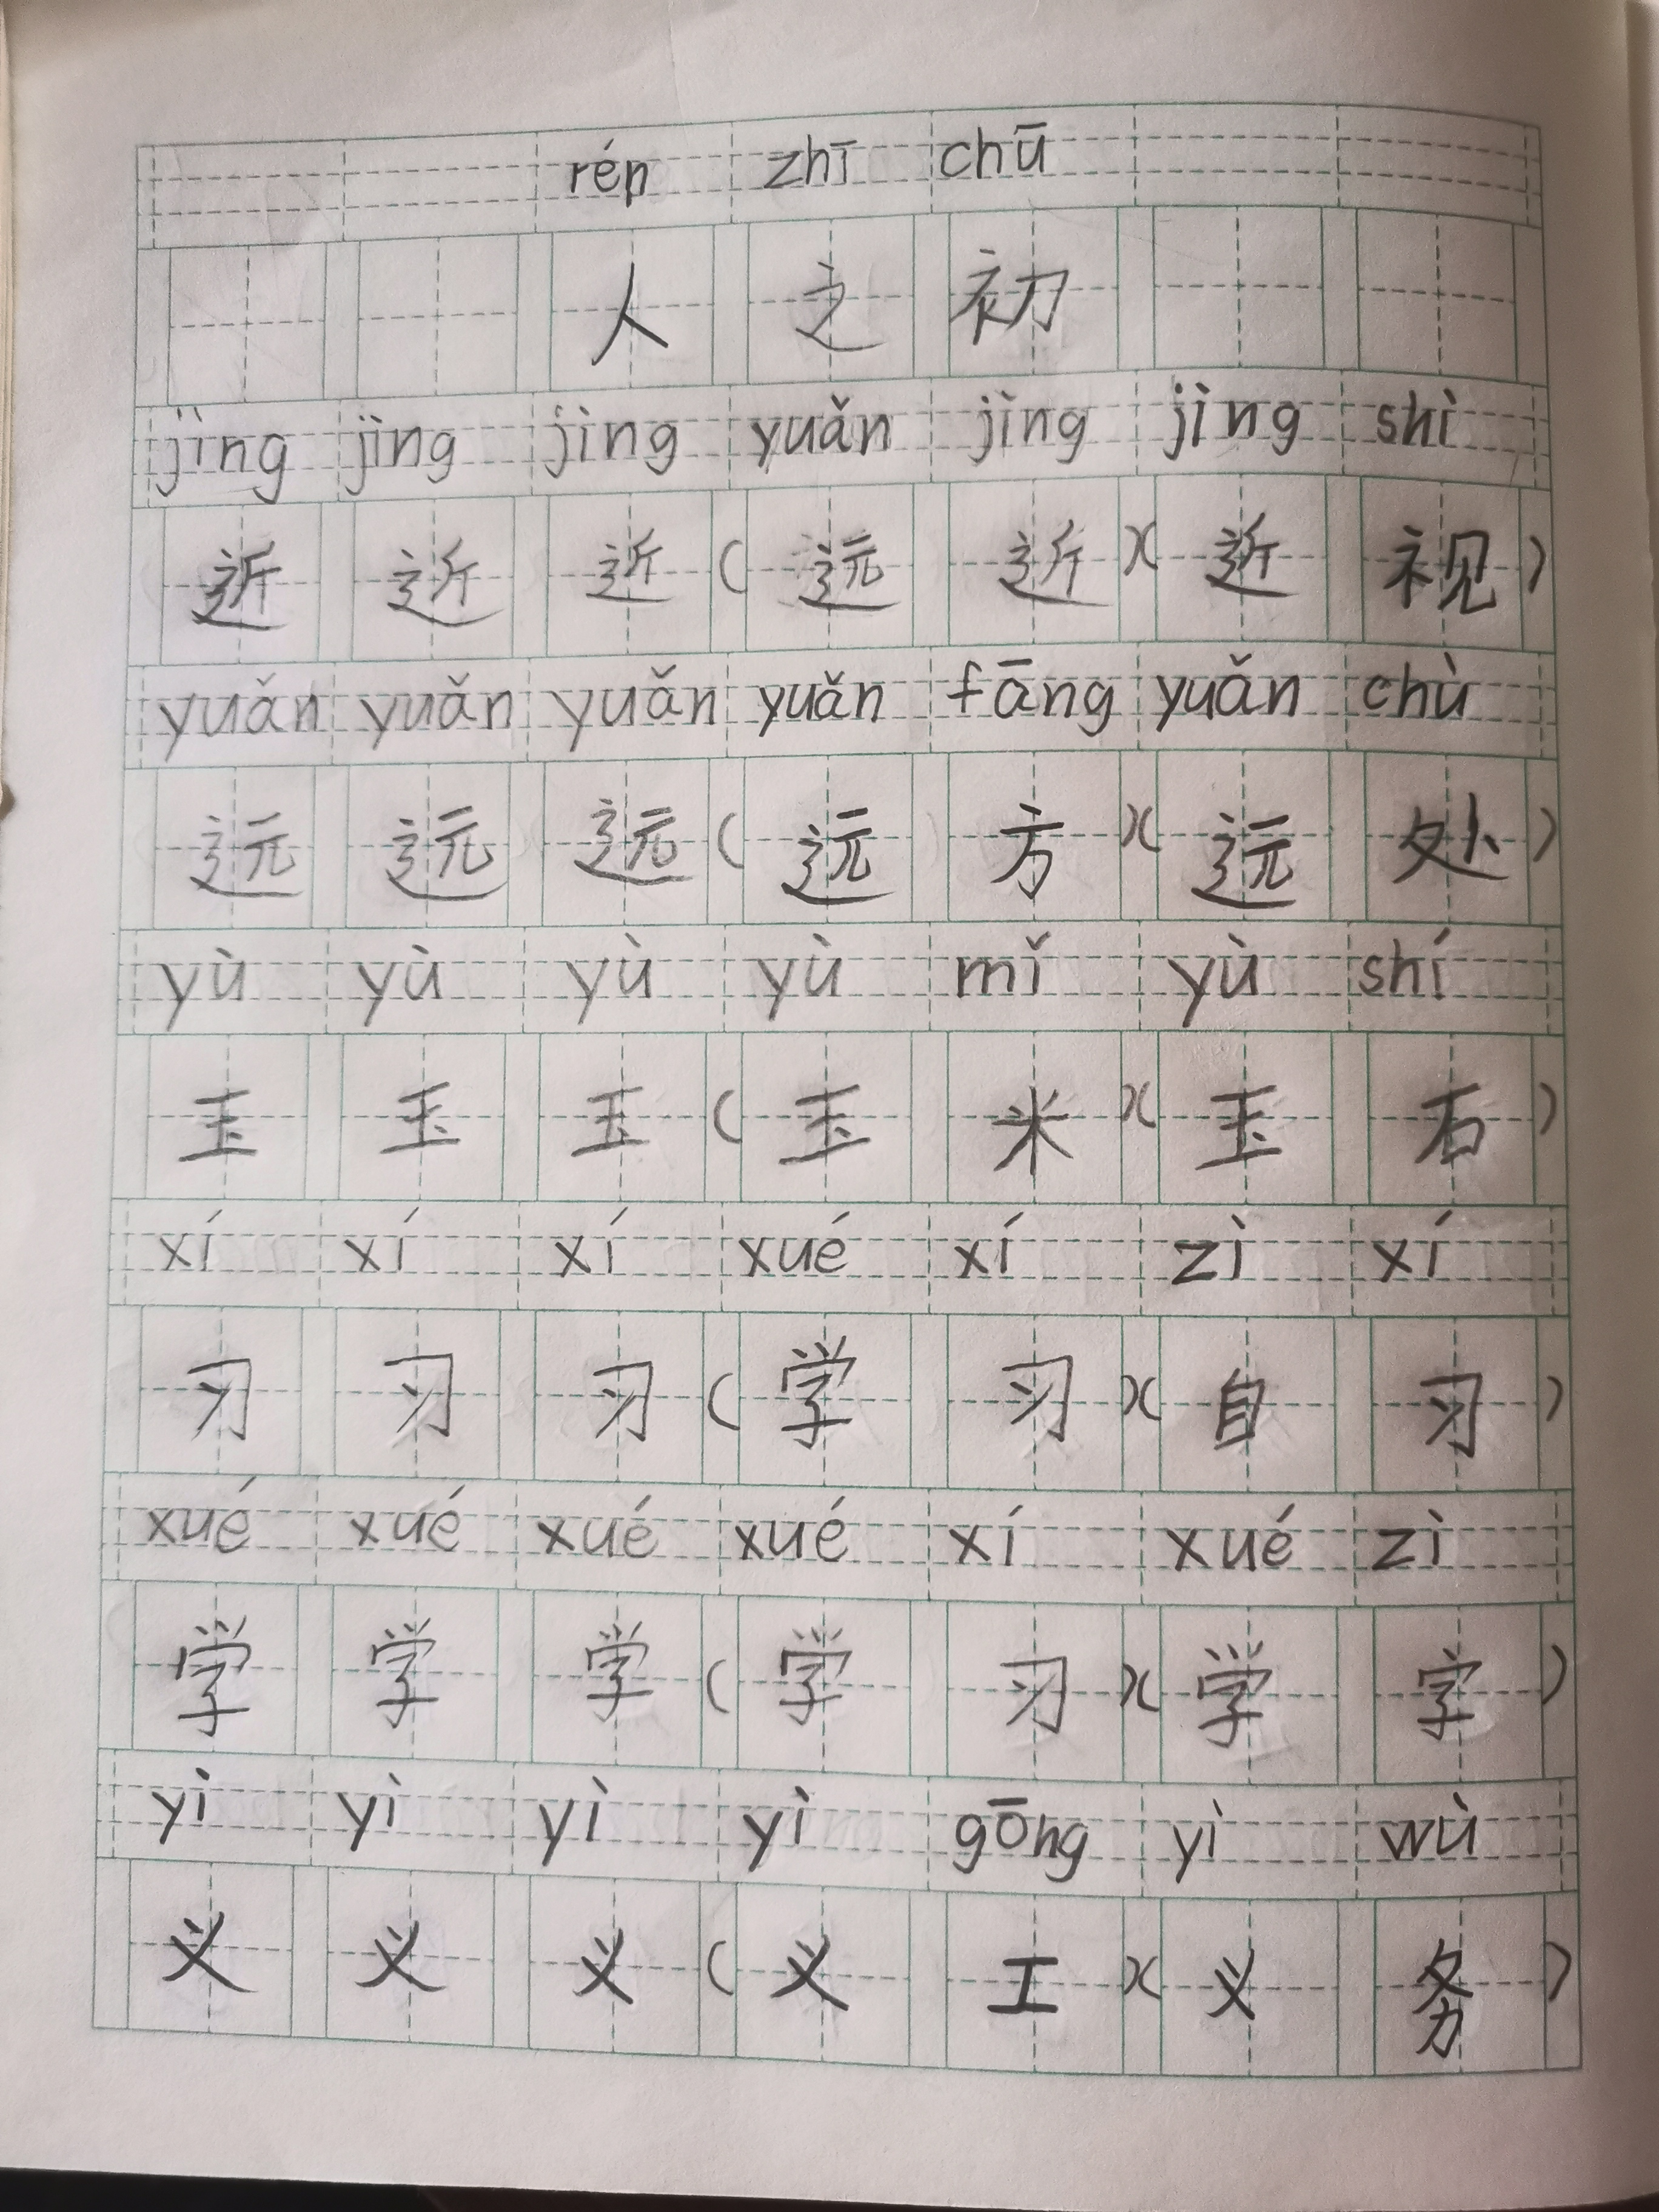 rén zhī chū
人之初
jìng jìng jìng yuǎn jìng jìng shì
近近近(远近)(近视)
yuǎn yuǎn yuǎn yuǎn fāng yuǎn chù
远远远(远方)(远处)
yù yù yù yù mǐ yù shí
玉玉玉(玉米)(玉石)
xí xí xí xué xí zì xí
习习习(学习)(自习)
xué xué xué xué xí xué zì
学学学(学习)(学字)
yì yì yì yì gōng yì wù
义义义(义工)(义务)